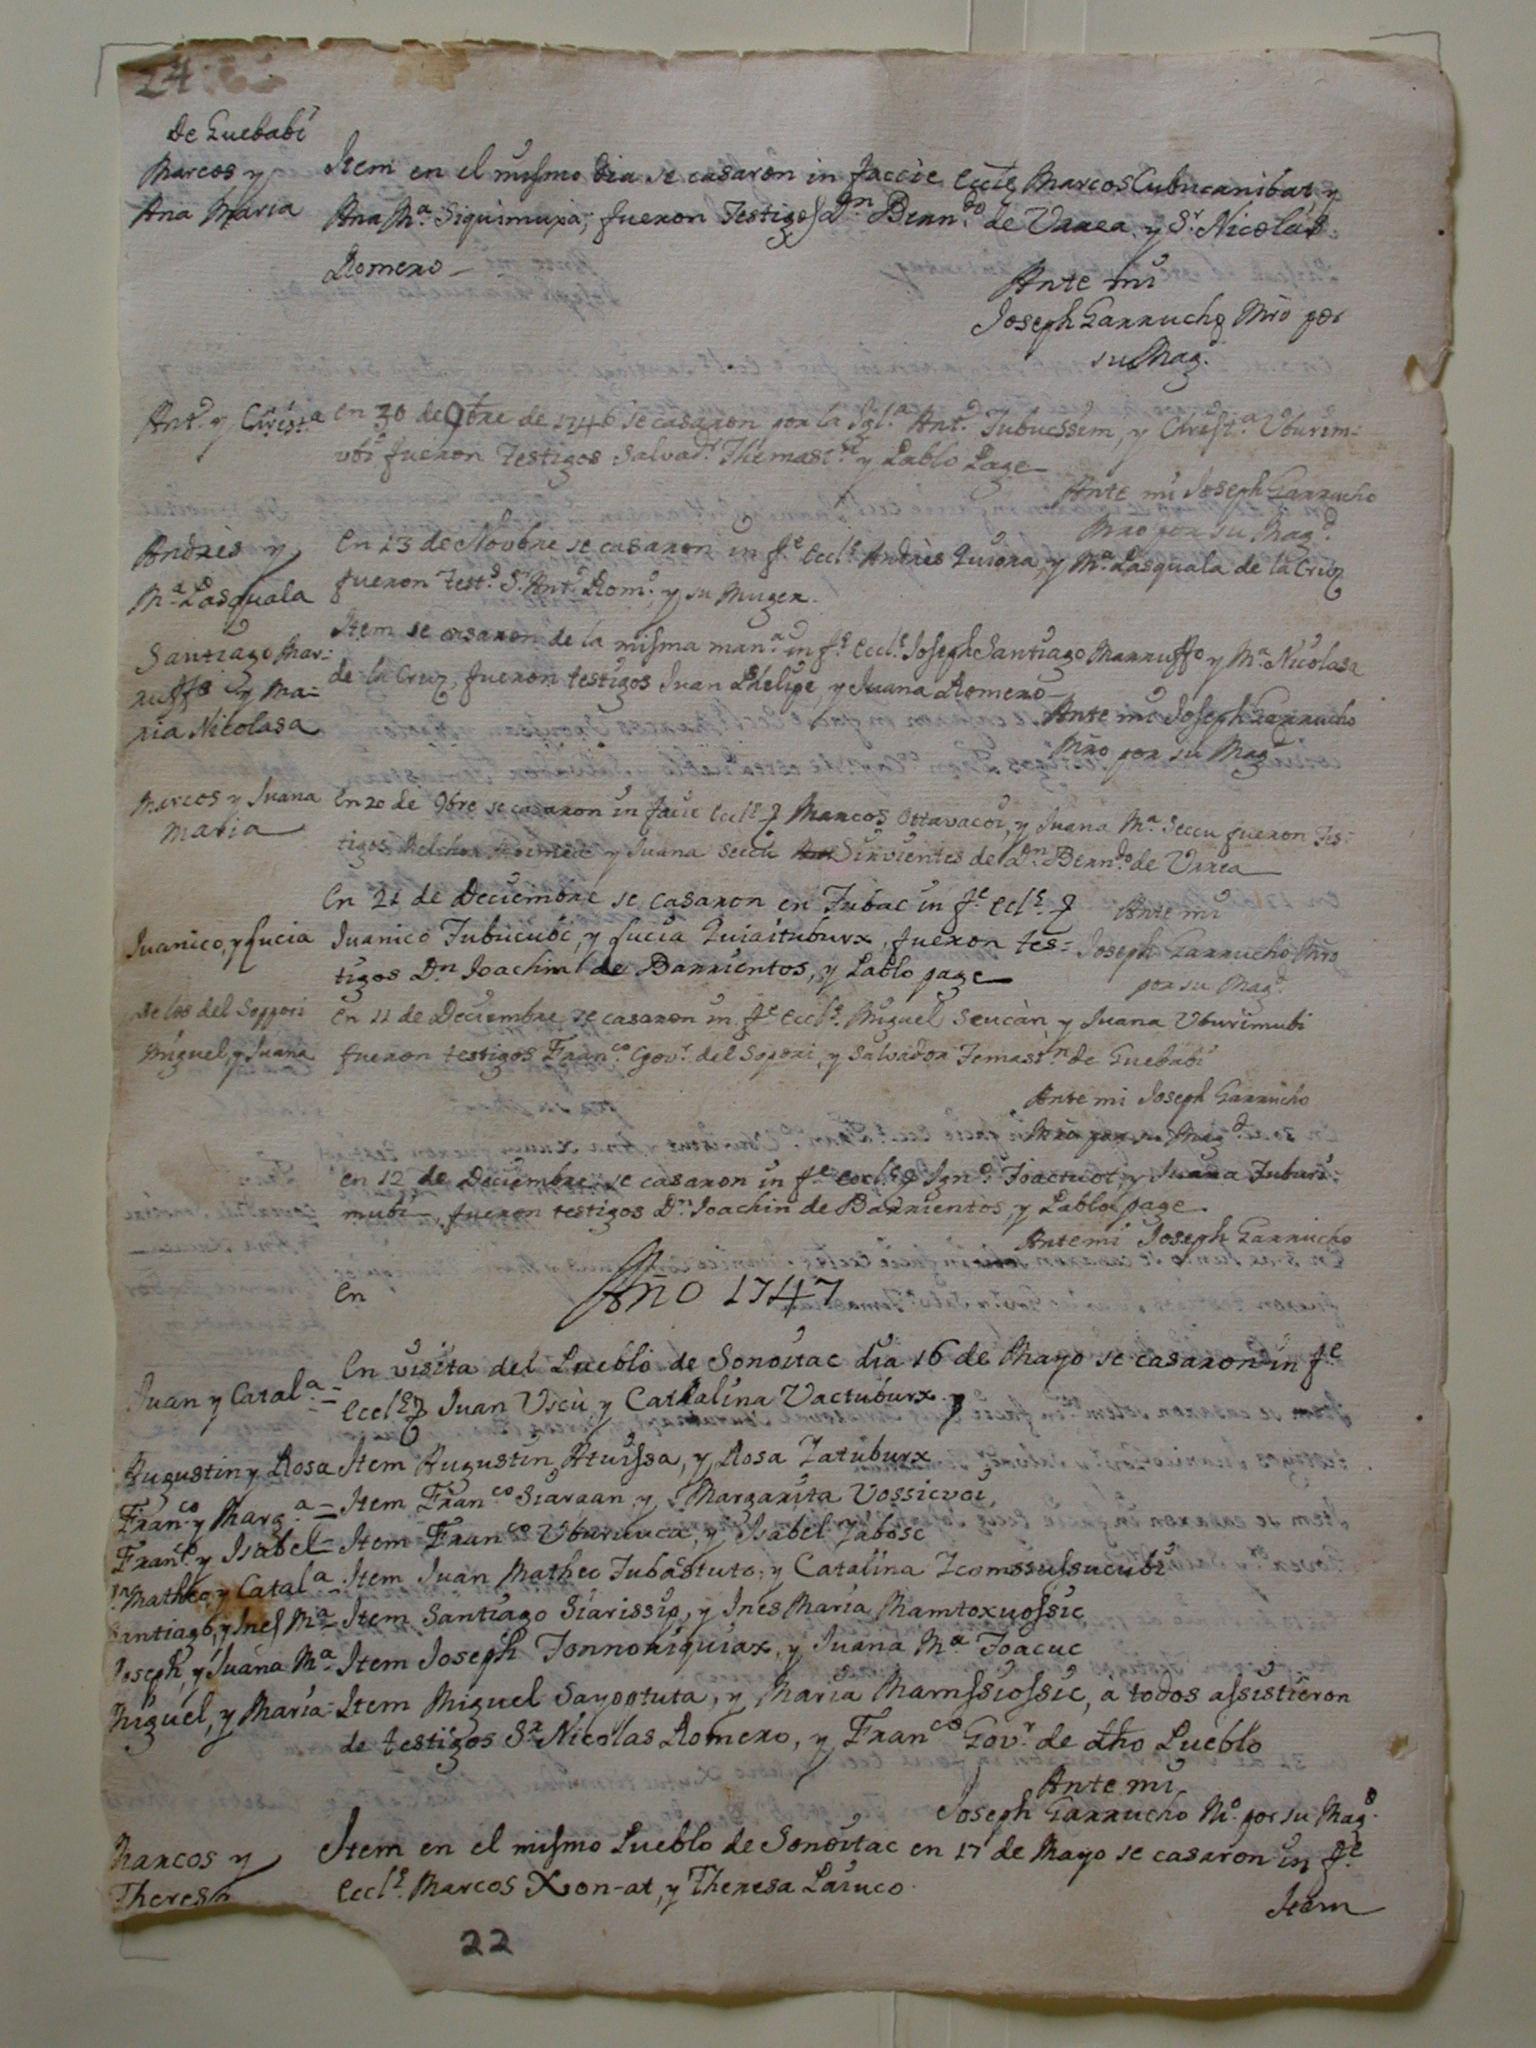 24
De Guebabi
Marcos y
Ana Maria
Item en el mismo dia se casaron in faccie Eccle Marcos Cubucanibat, y
Ana Mª Siquimuxa; fueron Testigos Dn Berndo de Vrrea y Sr Nicolás
Romero
Ante mi
Joseph Garrucho Mro por
su Magd
Anto y Christa
En 30 de 9bre de 1746 se casaron por la Igla Anto Tubucssem, y Christa Vburim-
ubi fueron Testigos Salvador Themastn y Pablo Page
Ante mi Joseph Garrucho
Mro por su Magd
Andrès y
Mª Pasquala
En 13 de Novbre se casaron in fe Eccle Andrès Quiora, y Mª Pasquala de la Cruz
fueron Testo Sr Anto Romo y su Muger
Santiago Mar-
ruffo y Ma-
ria Nicolasa
Item se casaron de la misma mana in fe Eccle Joseph Santiago Marruffo y Mª Nicolasa
de la Cruz, fueron testigos Juan Phelipe, y Juana Romero
Ante mi Joseph Garrucho
Mro por su Magd
Marcos y Juana
Maria
En 20 de 9bre se casaron in facie Eccle Marcos Ottavacoi, y Juana Mª Seccu fueron Tes-
tigos Melchor y Juana Seccu Sirvientes de Dn Berndo de Vrrea
En 21 de Deciembre se casaron en Tubac in fe Ecle
Ante mi
Juanico, y Lucia
Juanico Tubucubi, y Lucia Quiaituburx, fueron tes-
Joseph Garrucho Mro
tigos Dn Joachim de Barrientos, y Pablo page
por su Magd
De los del Soppori
Miguel, y Juana
En 11 de Deciembre se casaron in fe Eccle Miguel Seucàn y Juana Vburimubi
fueron testigos Franco Govr del Sopori, y Salvador Temastn de Guebabi
Ante mi Joseph Garrucho
Mro por su Magd
En 12 de Deciembre se casaron in fe Eccle Igno Toactuot y Juana Tuburi-
mubi, fueron testigos Dn Joachin de Barrientos, y Pablo page
Ante mi Joseph Garrucho
En
Año 1747
En visita del Pueblo de Sonoitac dia 16 de Mayo se casaron in fe
Juan y Catala
Eccle Juan Vscù y Catalina Vactuburx y
Augustin y Rosa
Item Augustin Atuissa, y Rosa Tatuburx
Franco y Marga
Item Franco Siaraan y Margarita Vossicvoi
Franco y Isabel
Item Franco Vburuuca, y Isabel Tabosc
Jn Matheo y Catala
Item Juan Matheo Tubastuto, y Catalina Tcomssussucubi
Santiago, y Ines Mª
Item Santiago Siarissip, y Ines Maria Mamtoxuossic
Joseph, y Juana Mª
Item Joseph Tonnoriquiax, y Juana Mª Toacuc
Miguel, y Maria
Item Miguel Sayostuta, y Maria Mamssiossic, à todos assistieron
de testigos Sr Nicolas Romero, y Franco Govr de dho Pueblo
Ante mi
Joseph Garrucho Mo por su Magd
Marcos y
Theresa
Item en el mismo Pueblo de Sonoitac en 17 de Mayo se casaron in fe
Eccle Marcos Xon-at, y Theresa Paiuco
Item
22